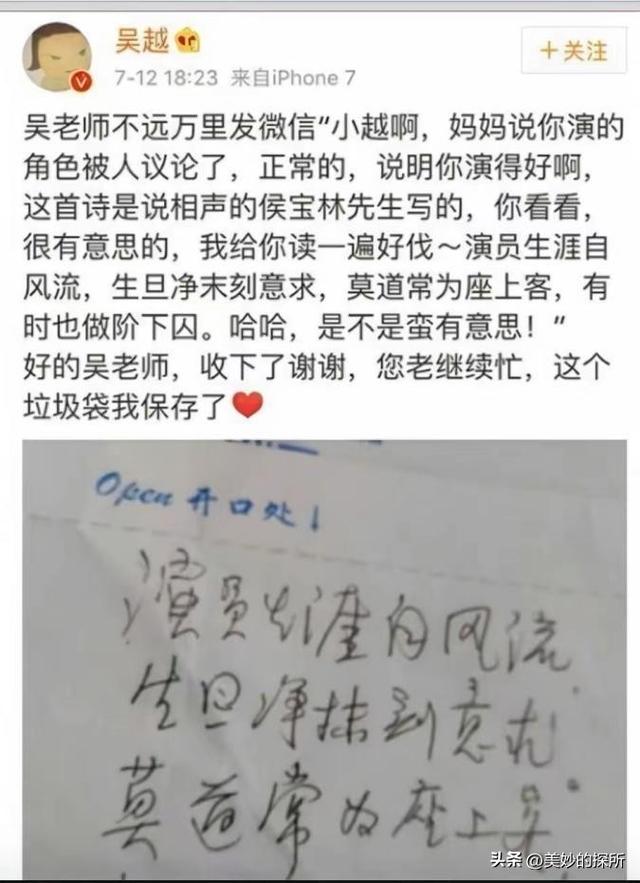 吴越
+关注
7-12 18:23 来自iPhone 7
吴老师不远万里发微信“小越啊，妈妈说你演的
角色被人议论了，正常的，说明你演得好啊，
这首诗是说相声的侯宝林先生写的，你看看，
很有意思的，我给你读一遍好伐～演员生涯自
风流，生旦净末刻意求，莫道常为座上客，有
时也做阶下囚。哈哈，是不是蛮有意思！”
好的吴老师，收下了谢谢，您老继续忙，这个
垃圾袋我保存了❤
Open 开口处！
演员生涯自风流
生旦净抹刻意求
莫道常为座上客
头条 @美妙的探所